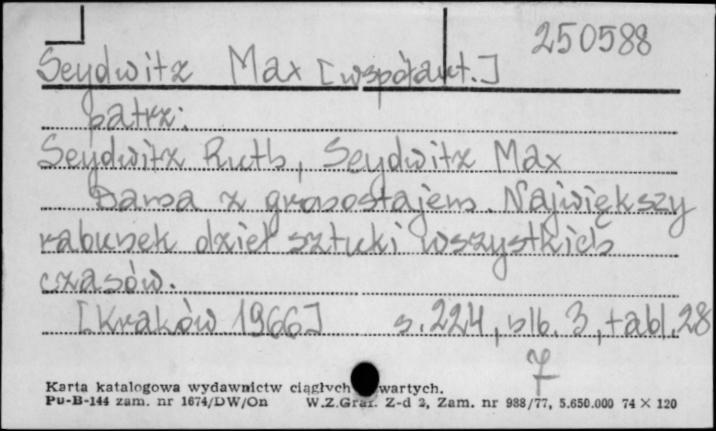 250588
Seydwitz Max [współaut.]
patrz:
Seydwitz Ruth, Seydwitz Max
Dama z gronostajem. Największy
rabunek dzieł sztuki wszystkich
czasów.
[Kraków 1966] s. 224, slb. 3, tabl. 28
Karta katalogowa wydawnictw ciągłych wartych.
Pu-B-144 zam. nr 1674/DW/On W.Z.Graf. Z-d 2, Zam. nr 988/77, 5.650.000 74 × 120